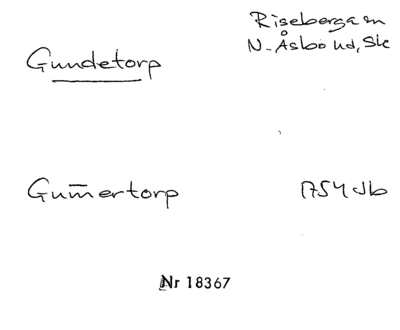 Gundetorp
Riseberga sn
N. Åsbo hd, Sk
Gum̄ertorp
1754 Jb
Nr 18367